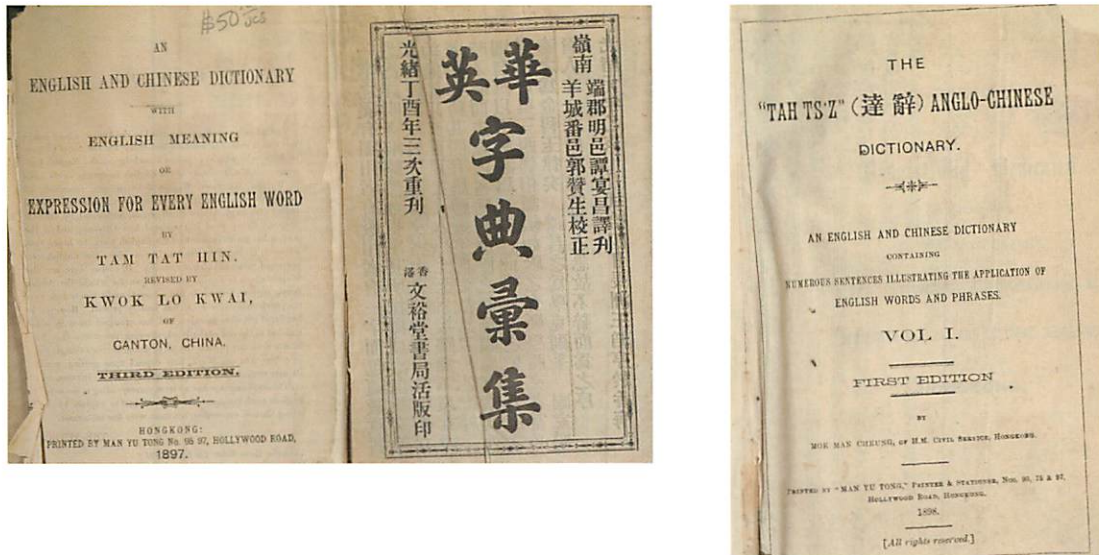 $50
AN
ENGLISH AND CHINESE DICTIONARY
WITH
ENGLISH MEANING
OR
EXPRESSION FOR EVERY ENGLISH WORD
BY
TAM TAT HIN.
REVISED BY
KWOK LO KWAI,
OF
CANTON, CHINA.
THIRD EDITION.
HONGKONG:
PRINTED BY MAN YU TONG No. 95 97, HOLLYWOOD ROAD,
1897.
嶺南
端郡明邑譚宴昌譯刊
羊城番邑郭贊生校正
華英
字典彙集
光緒丁酉年三次重刊
香港
文裕堂書局活版印
THE
"TAH TS'Z" (達辭) ANGLO-CHINESE
DICTIONARY.
AN ENGLISH AND CHINESE DICTIONARY
CONTAINING
NUMEROUS SENTENCES ILLUSTRATING THE APPLICATION OF
ENGLISH WORDS AND PHRASES.
VOL I.
FIRST EDITION
BY
MOK MAN CHEUNG, OF H.M. CIVIL SERVICE, HONGKONG.
PRINTED BY "MAN YU TONG," PRINTER & STATIONER, NOS.
HOLLYWOOD ROAD, HONGKONG.
1898.
[All rights reserved.]